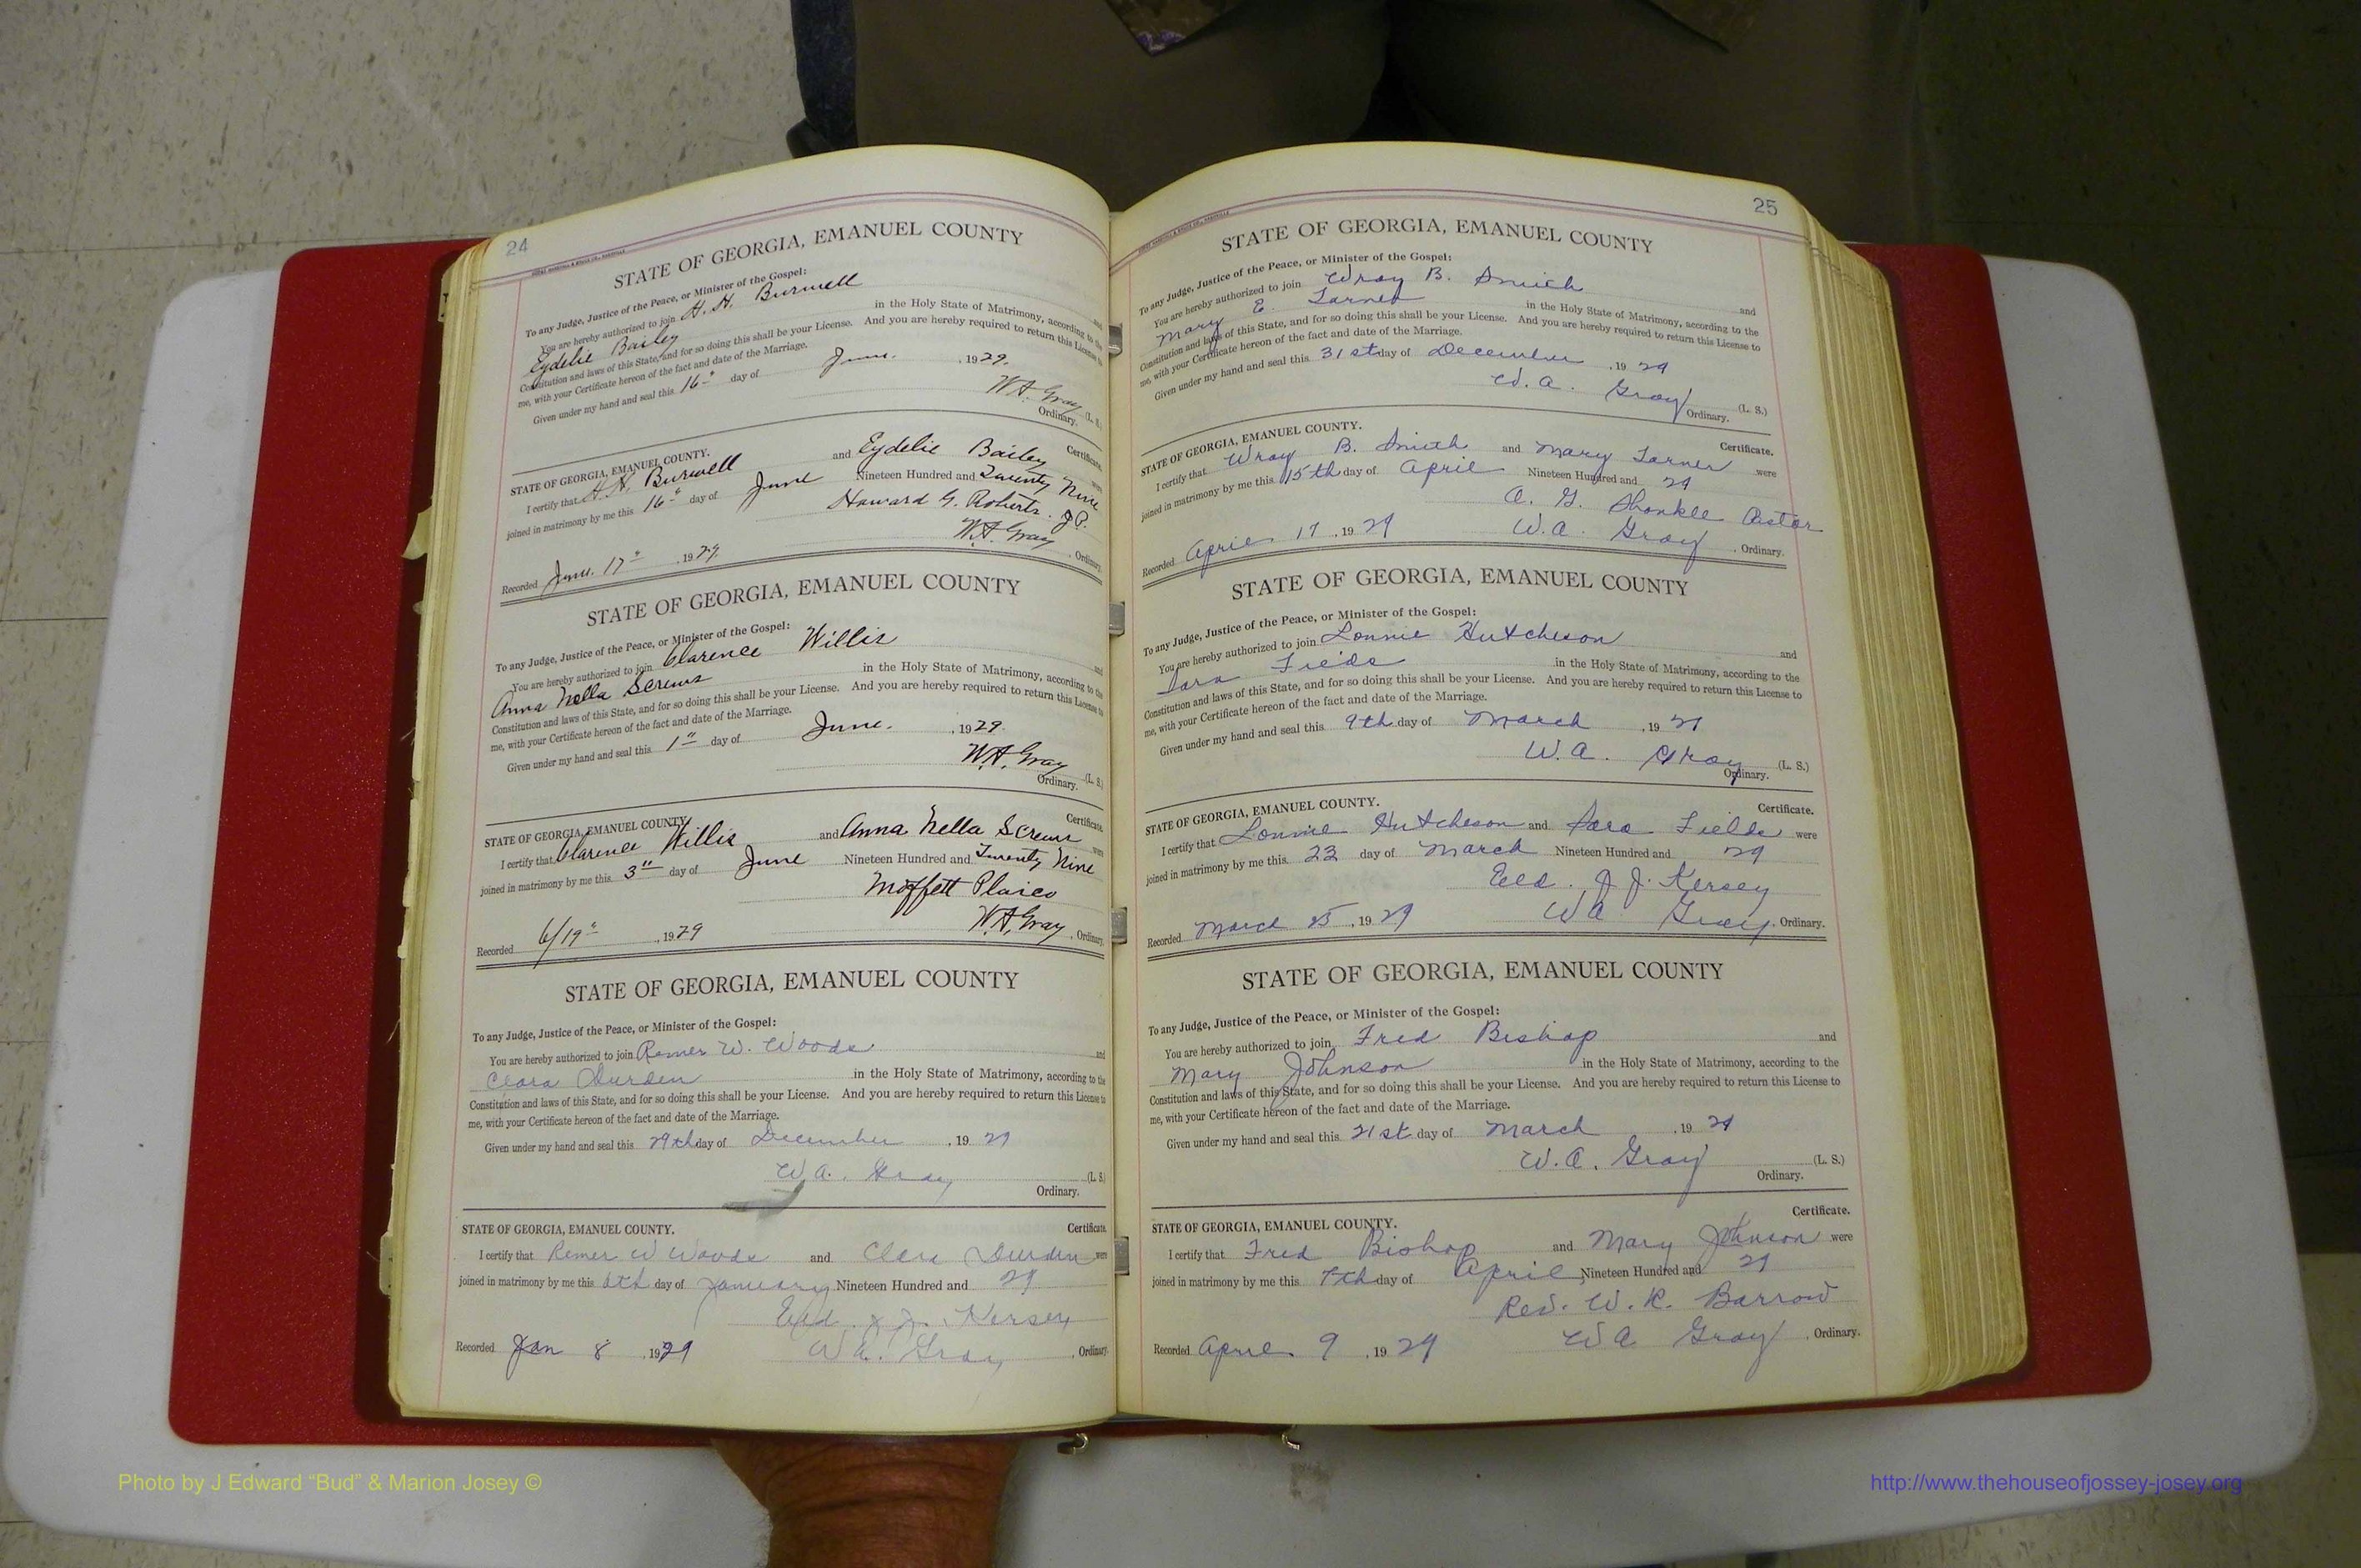 24
STATE OF GEORGIA, EMANUEL COUNTY
To any Judge, Justice of the Peace, or Minister of the Gospel:
You are hereby authorized to join H. H. Burwell and
Eydelie Bailey in the Holy State of Matrimony, according to the
Constitution and laws of this State, and for so doing this shall be your License. And you are hereby required to return this License to
me, with your Certificate hereon of the fact and date of the Marriage.
Given under my hand and seal this 16" day of June. , 1929.
W.A. Gray (L. S.)
Ordinary.
STATE OF GEORGIA, EMANUEL COUNTY. Certificate.
I certify that H. H. Burwell and Eydelie Bailey were
joined in matrimony by me this 16" day of June Nineteen Hundred and Twenty Nine
Howard G. Roberts. J.P.
Recorded June. 17" , 1929 W.A. Gray , Ordinary.
STATE OF GEORGIA, EMANUEL COUNTY
To any Judge, Justice of the Peace, or Minister of the Gospel:
You are hereby authorized to join Clarence Willis and
Anna Nella Screws in the Holy State of Matrimony, according to the
Constitution and laws of this State, and for so doing this shall be your License. And you are hereby required to return this License to
me, with your Certificate hereon of the fact and date of the Marriage.
Given under my hand and seal this 1" day of June. , 1929.
W.A. Gray (L. S.)
Ordinary.
STATE OF GEORGIA, EMANUEL COUNTY. Certificate.
I certify that Clarence Willis and Anna Nella Screws were
joined in matrimony by me this 3" day of June Nineteen Hundred and Twenty Nine
Moffett
Recorded 6/19" , 1929 W.A. Gray , Ordinary.
STATE OF GEORGIA, EMANUEL COUNTY
To any Judge, Justice of the Peace, or Minister of the Gospel:
You are hereby authorized to join Remer W. Woods and
Clara Durden in the Holy State of Matrimony, according to the
Constitution and laws of this State, and for so doing this shall be your License. And you are hereby required to return this License to
me, with your Certificate hereon of the fact and date of the Marriage.
Given under my hand and seal this 29th day of December , 19 29
W.A. Gray (L. S.)
Ordinary.
STATE OF GEORGIA, EMANUEL COUNTY. Certificate.
I certify that Remer W Woods and Clara Durden were
joined in matrimony by me this 6th day of January Nineteen Hundred and 29
Eld. J. J. Kersey
Recorded Jan 8 , 1929 W A. Gray , Ordinary.
25
STATE OF GEORGIA, EMANUEL COUNTY
To any Judge, Justice of the Peace, or Minister of the Gospel:
You are hereby authorized to join Wray B. Smith and
Mary E. Tarner in the Holy State of Matrimony, according to the
Constitution and laws of this State, and for so doing this shall be your License. And you are hereby required to return this License to
me, with your Certificate hereon of the fact and date of the Marriage.
Given under my hand and seal this 31st day of December , 19 29
W. A. Gray (L. S.)
Ordinary.
STATE OF GEORGIA, EMANUEL COUNTY. Certificate.
I certify that Wray B. Smith and Mary Tarner were
joined in matrimony by me this 15th day of April Nineteen Hundred and 29
A. G. Shankle Pastor
Recorded April 17 , 19 29 W.A. Gray , Ordinary.
STATE OF GEORGIA, EMANUEL COUNTY
To any Judge, Justice of the Peace, or Minister of the Gospel:
You are hereby authorized to join Lonnie Hutcheson and
Sara Fields in the Holy State of Matrimony, according to the
Constitution and laws of this State, and for so doing this shall be your License. And you are hereby required to return this License to
me, with your Certificate hereon of the fact and date of the Marriage.
Given under my hand and seal this 9th day of March , 19 29
W. A. Gray (L. S.)
Ordinary.
STATE OF GEORGIA, EMANUEL COUNTY. Certificate.
I certify that Lonnie Hutcheson and Sara Fields were
joined in matrimony by me this 23 day of March Nineteen Hundred and 29
Eld. J. J. Kersey
Recorded March 25 , 19 29 W A Gray , Ordinary.
STATE OF GEORGIA, EMANUEL COUNTY
To any Judge, Justice of the Peace, or Minister of the Gospel:
You are hereby authorized to join Fred Bishop and
Mary Johnson in the Holy State of Matrimony, according to the
Constitution and laws of this State, and for so doing this shall be your License. And you are hereby required to return this License to
me, with your Certificate hereon of the fact and date of the Marriage.
Given under my hand and seal this 21st day of March , 19 29
W. A. Gray (L. S.)
Ordinary.
STATE OF GEORGIA, EMANUEL COUNTY. Certificate.
I certify that Fred Bishop and Mary Johnson were
joined in matrimony by me this 7th day of April Nineteen Hundred and 29
Rev. W. R. Barrow
Recorded April 9 , 19 29 W A Gray , Ordinary.
Photo by J Edward “Bud” & Marion Josey ©
http://www.thehouseofjossey-josey.org